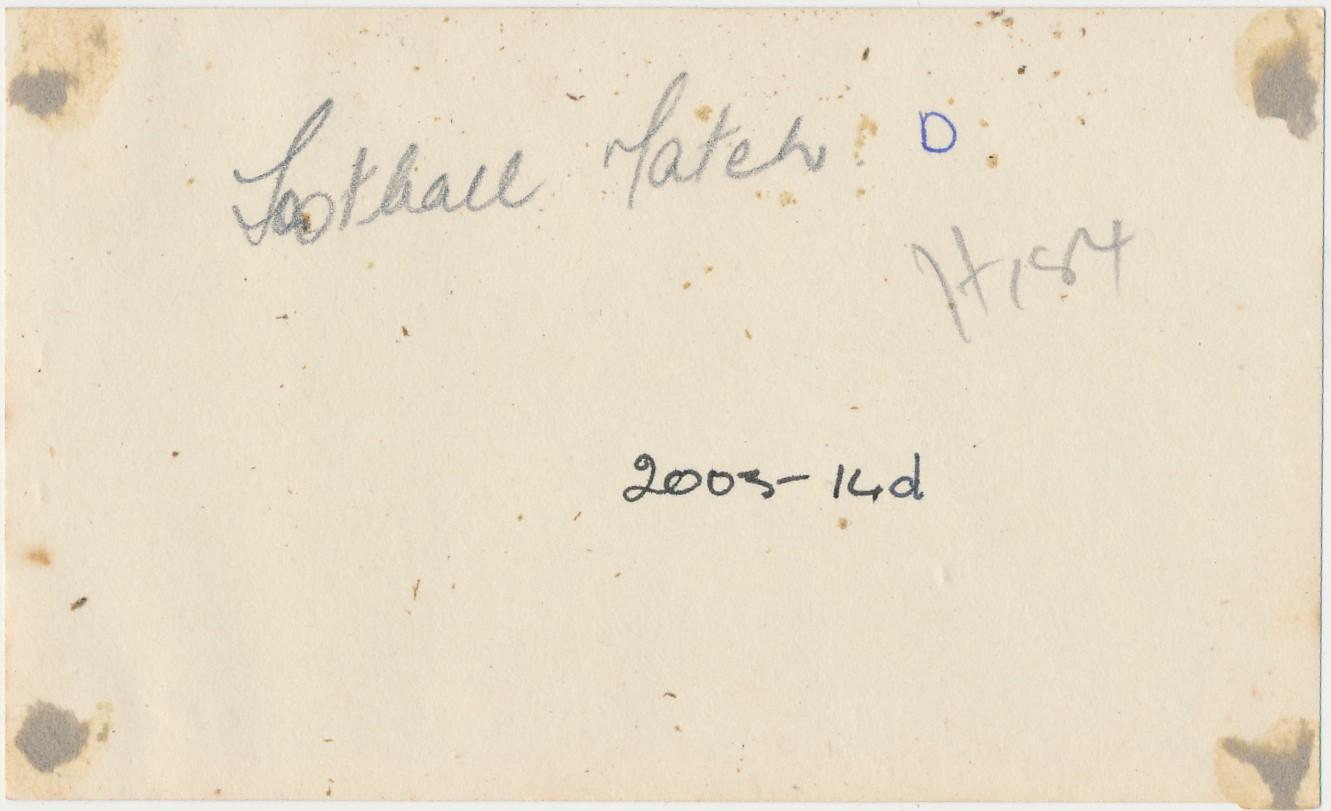 Football Match. D
H184
2003-14d